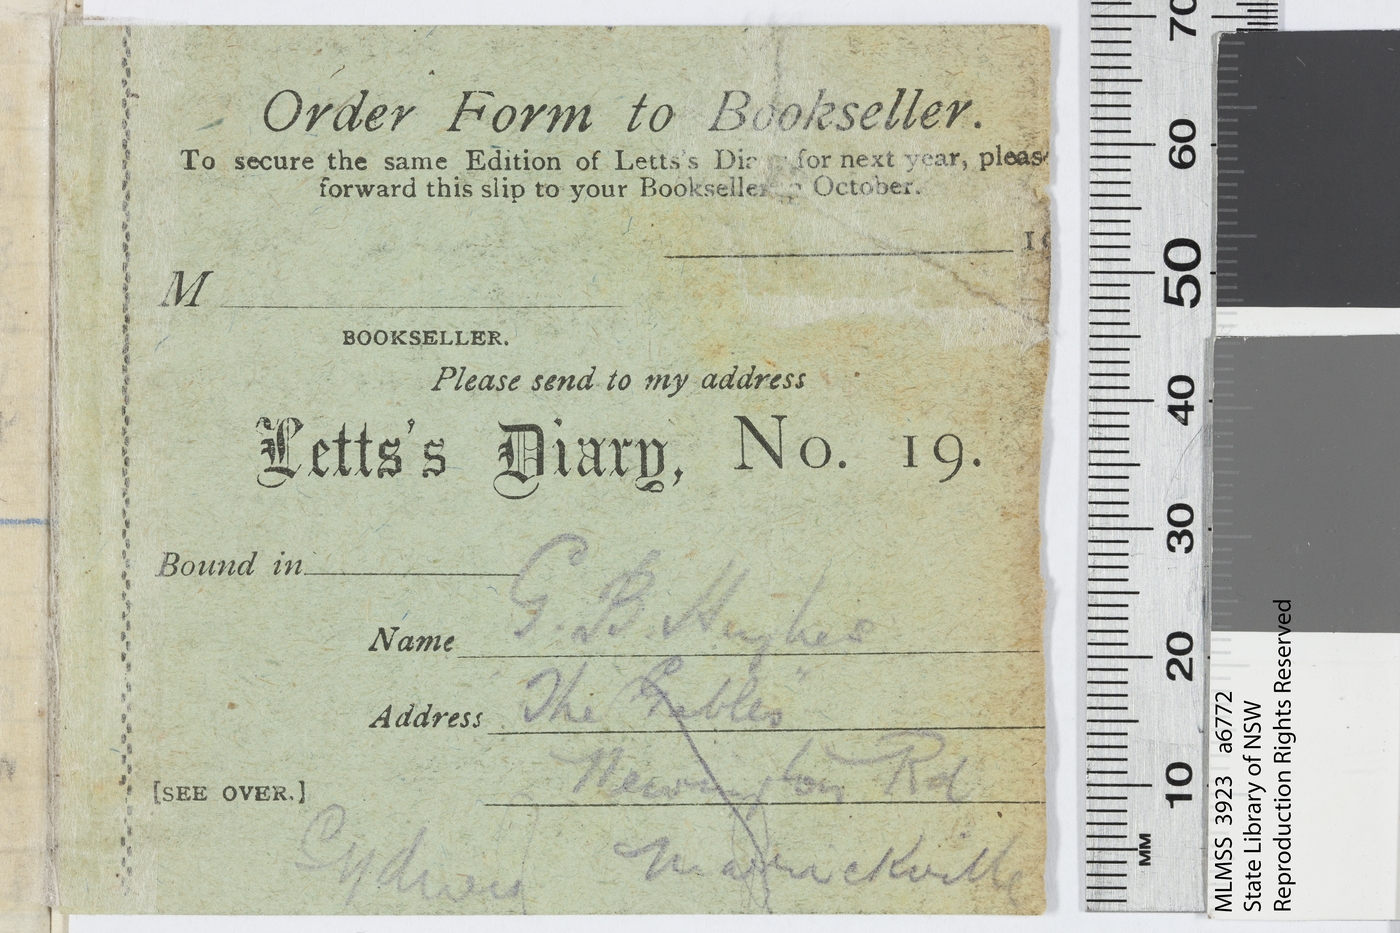 Order Form to Bookseller.
To secure the same Edition of Letts's Dia for next year, pleas
forward this slip to your Bookseller October.
19
M
BOOKSELLER.
Please send to my address
Letts's Diary, No. 19.
Bound in
Name G. B. Hughes
Address "The Gables"
Newington Rd
[SEE OVER.]
Sydney Marrickville
70
60
50
40
30
20
10
MM
MLMSS 3923 a6772
State Library of NSW
Reproduction Rights Reserved